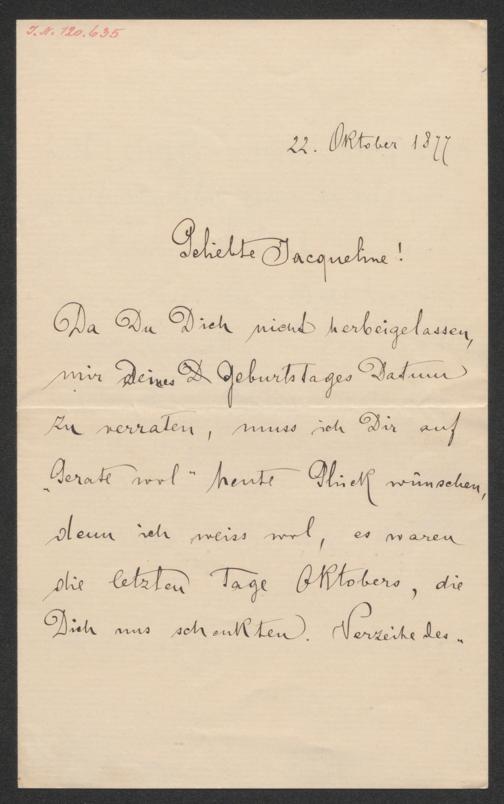 J.N. 120.635
22. Oktober 1877
Geliebte Jacqueline!
Da Du Dich nicht herbeigelassen,
mir Deines D Geburtstages Datum
zu verraten, muss ich Dir auf
"Gerate wol" heute Glück wünschen,
denn ich weiss wol, es waren
die letzten Tage Oktobers, die
Dich uns schenkten. Verzeihe des„